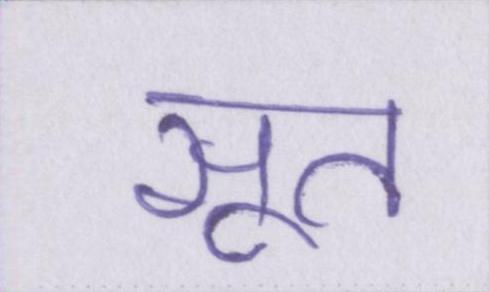 सूत